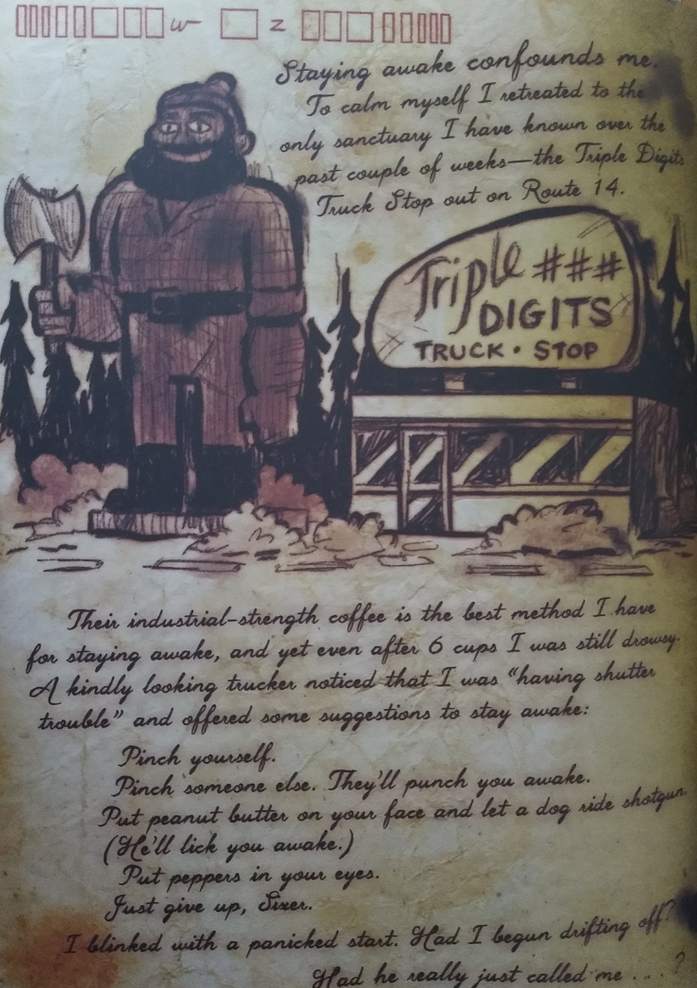 w z
Staying awake confounds me.
To calm myself I retreated to the
only sanctuary I have known over the
past couple of weeks—the Triple Digits
Truck Stop out on Route 14.
Triple ###
DIGITS
TRUCK • STOP
Their industrial-strength coffee is the best method I have
for staying awake, and yet even after 6 cups I was still drowsy.
A kindly looking trucker noticed that I was “having shutter
trouble” and offered some suggestions to stay awake:
Pinch yourself.
Pinch someone else. They'll punch you awake.
Put peanut butter on your face and let a dog ride shotgun.
(He'll lick you awake.)
Put peppers in your eyes.
Just give up, Sixer.
I blinked with a panicked start. Had I begun drifting off?
Had he really just called me . . . ?